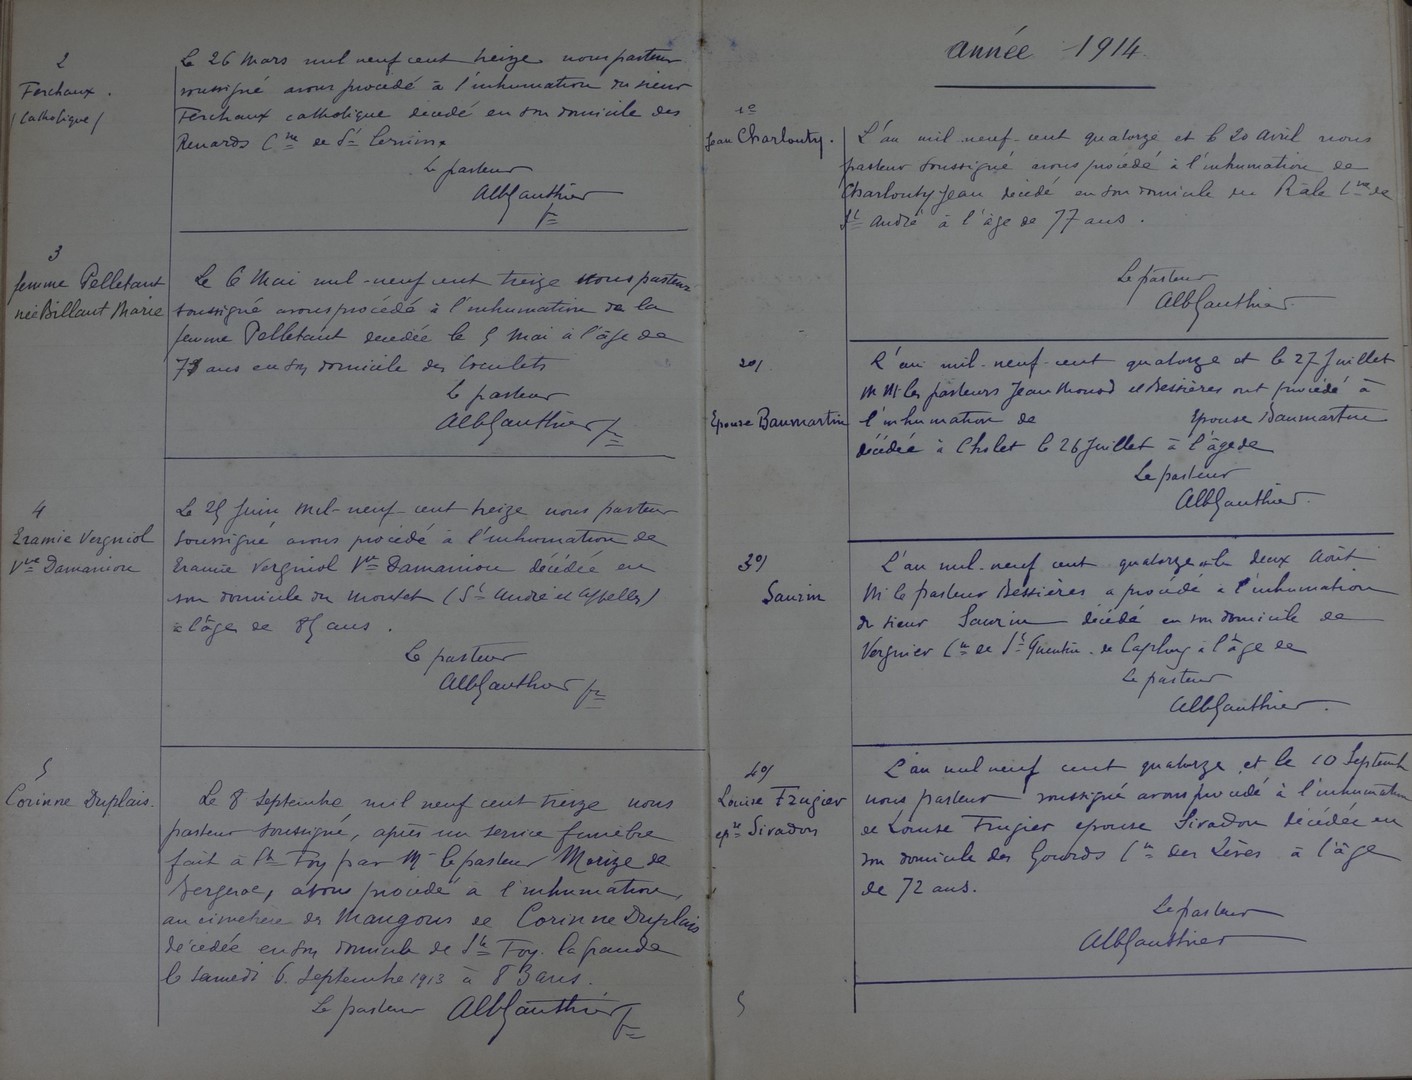 2
Ferchaux.
(Catholique)
Le 26 Mars mil neuf cent treize nous pasteur
soussigné avons procédé à l'inhumation du sieur
Ferchaux catholique décédé en son domicile des
Renards Cne de St
Le pasteur
AlbGauthier
3
femme Pelletant
née Billaut Marie
Le 6 Mai mil-neuf cent treize nous pasteur
soussigné avons procédé à l'inhumation de la
femme Pelletant décédée le 5 Mai à l'âge de
ans en son domicile des
Le pasteur
AlbGauthier
4
Eramie Vergniol
Vve Damaniou
Le 25 Juin mil-neuf-cent treize nous pasteur
soussigné avons procédé à l'inhumation de
Eramie Vergniol Vve Damaniou décédée en
son domicile du Montet (St André et Appelles)
à l'âge de 85 ans.
Le pasteur
AlbGauthier
5
Corinne Duplais.
Le 8 Septembre mil neuf cent treize nous
pasteur soussigné, après un service funèbre
fait à Ste Foy par Mr le pasteur Morize de
Bergerac, avons procédé à l'inhumation,
au cimetière des Mangons de Corinne Duplais
décédée en son domicile de Ste Foy la Grande
le Samedi 6 Septembre 1913 à 83 ans.
Le pasteur AlbGauthier
année 1914.
1o
Jean Charlouty.
L'an mil-neuf-cent quatorze et le 20 Avril nous
pasteur soussigné avons procédé à l'inhumation de
Charlouty Jean décédé en son domicile du Râle Cne de
St André à l'âge de 77 ans.
Le pasteur
AlbGauthier.
2o/
Epouse Baumartin
L'an mil-neuf-cent quatorze et le 27 Juillet
MM. les pasteurs Jean Monod et Bessières ont procédé à
l'inhumation de épouse Baumartin
décédée à Cholet le 26 Juillet à l'âge de
Le pasteur
AlbGauthier.
3o/
Saurin
L'an mil-neuf cent quatorze et le deux Août
M. le pasteur Bessières a procédé à l'inhumation
du sieur Saurin décédé en son domicile de
Vergnier Cne de St Quentin de Caplong à l'âge de
Le pasteur
AlbGauthier.
4o/
Louise Frugier
épse Sivadon
L'an mil neuf cent quatorze et le 10 Septemb
nous pasteur soussigné avons procédé à l'inhumation
de Louise Frugier épouse Sivadon décédée en
son domicile des Gourds Cne des Lèves à l'âge
de 72 ans.
Le pasteur
AlbGauthier
5